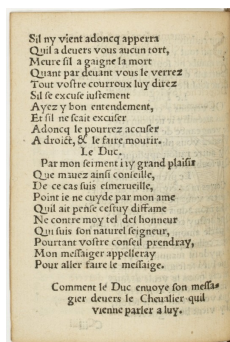 Sil ny vient adoncq apperra
Quil a deuers vous aucun tort,
Meure sil a gaigne la mort
Quant par deuant vous le verrez
Tout vostre courroux luy direz
Sil se excuse iustement
Ayez y bon entendement,
Et sil ne scait excuser
Adoncq le pourrez accuser
A droict, & le faire mourir.
Le Duc.
Par mon serment i'y grand plaisir
Que mauez ainsi conseille,
De ce cas suis esmerueille,
Point ie ne cuyde par mon ame
Quil ait pense cestuy diffame
Ne contre moy tel deshonneur
Qui suis son naturel seigneur,
Pourtant vostre conseil prendray,
Mon messaiger appelleray
Pour aller faire le messaige.
Comment le Duc enuoye son messa-
gier deuers le Cheualier quil
vienne parler a luy.